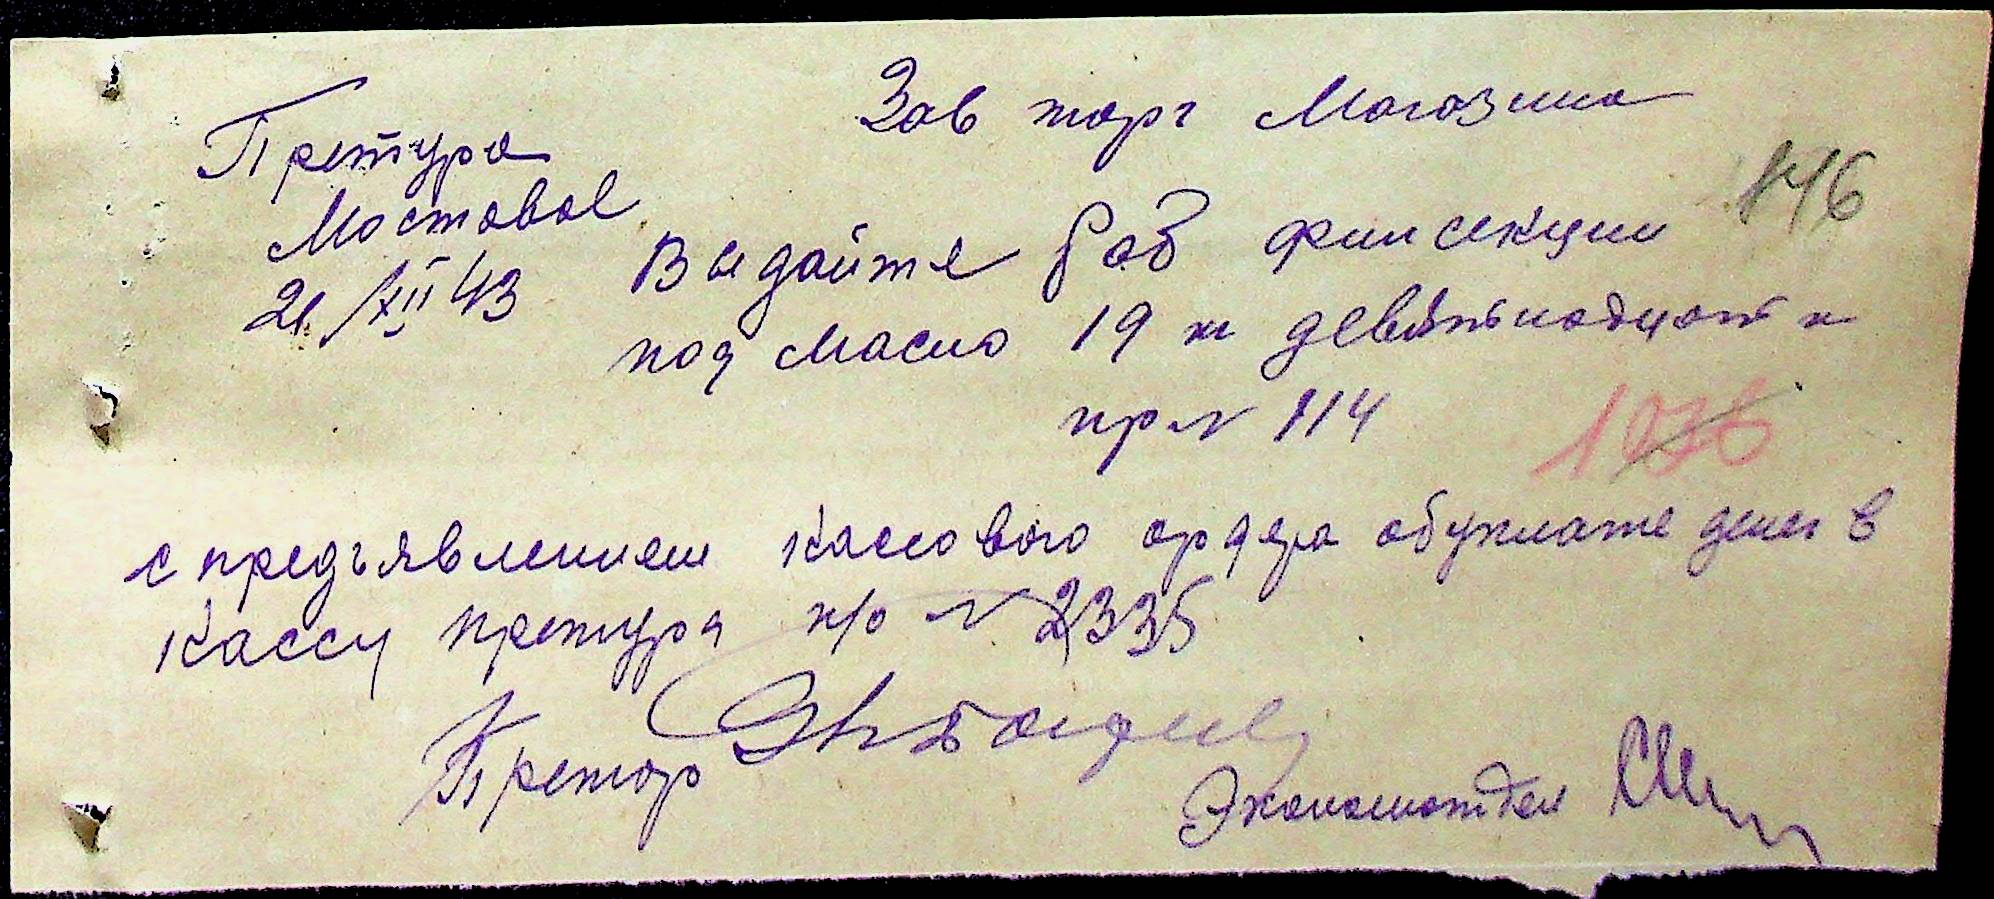 Зав торг Магазина
Претура
Мостовое
21/XII 43
146
Выдайте раб финсекции
под масло 19 кг девятьнадцать к
пр № 114
1036
с предъявлением кассового ордера об уплате денег в
кассу претура п/о № 2335
Претор
Экономотдел